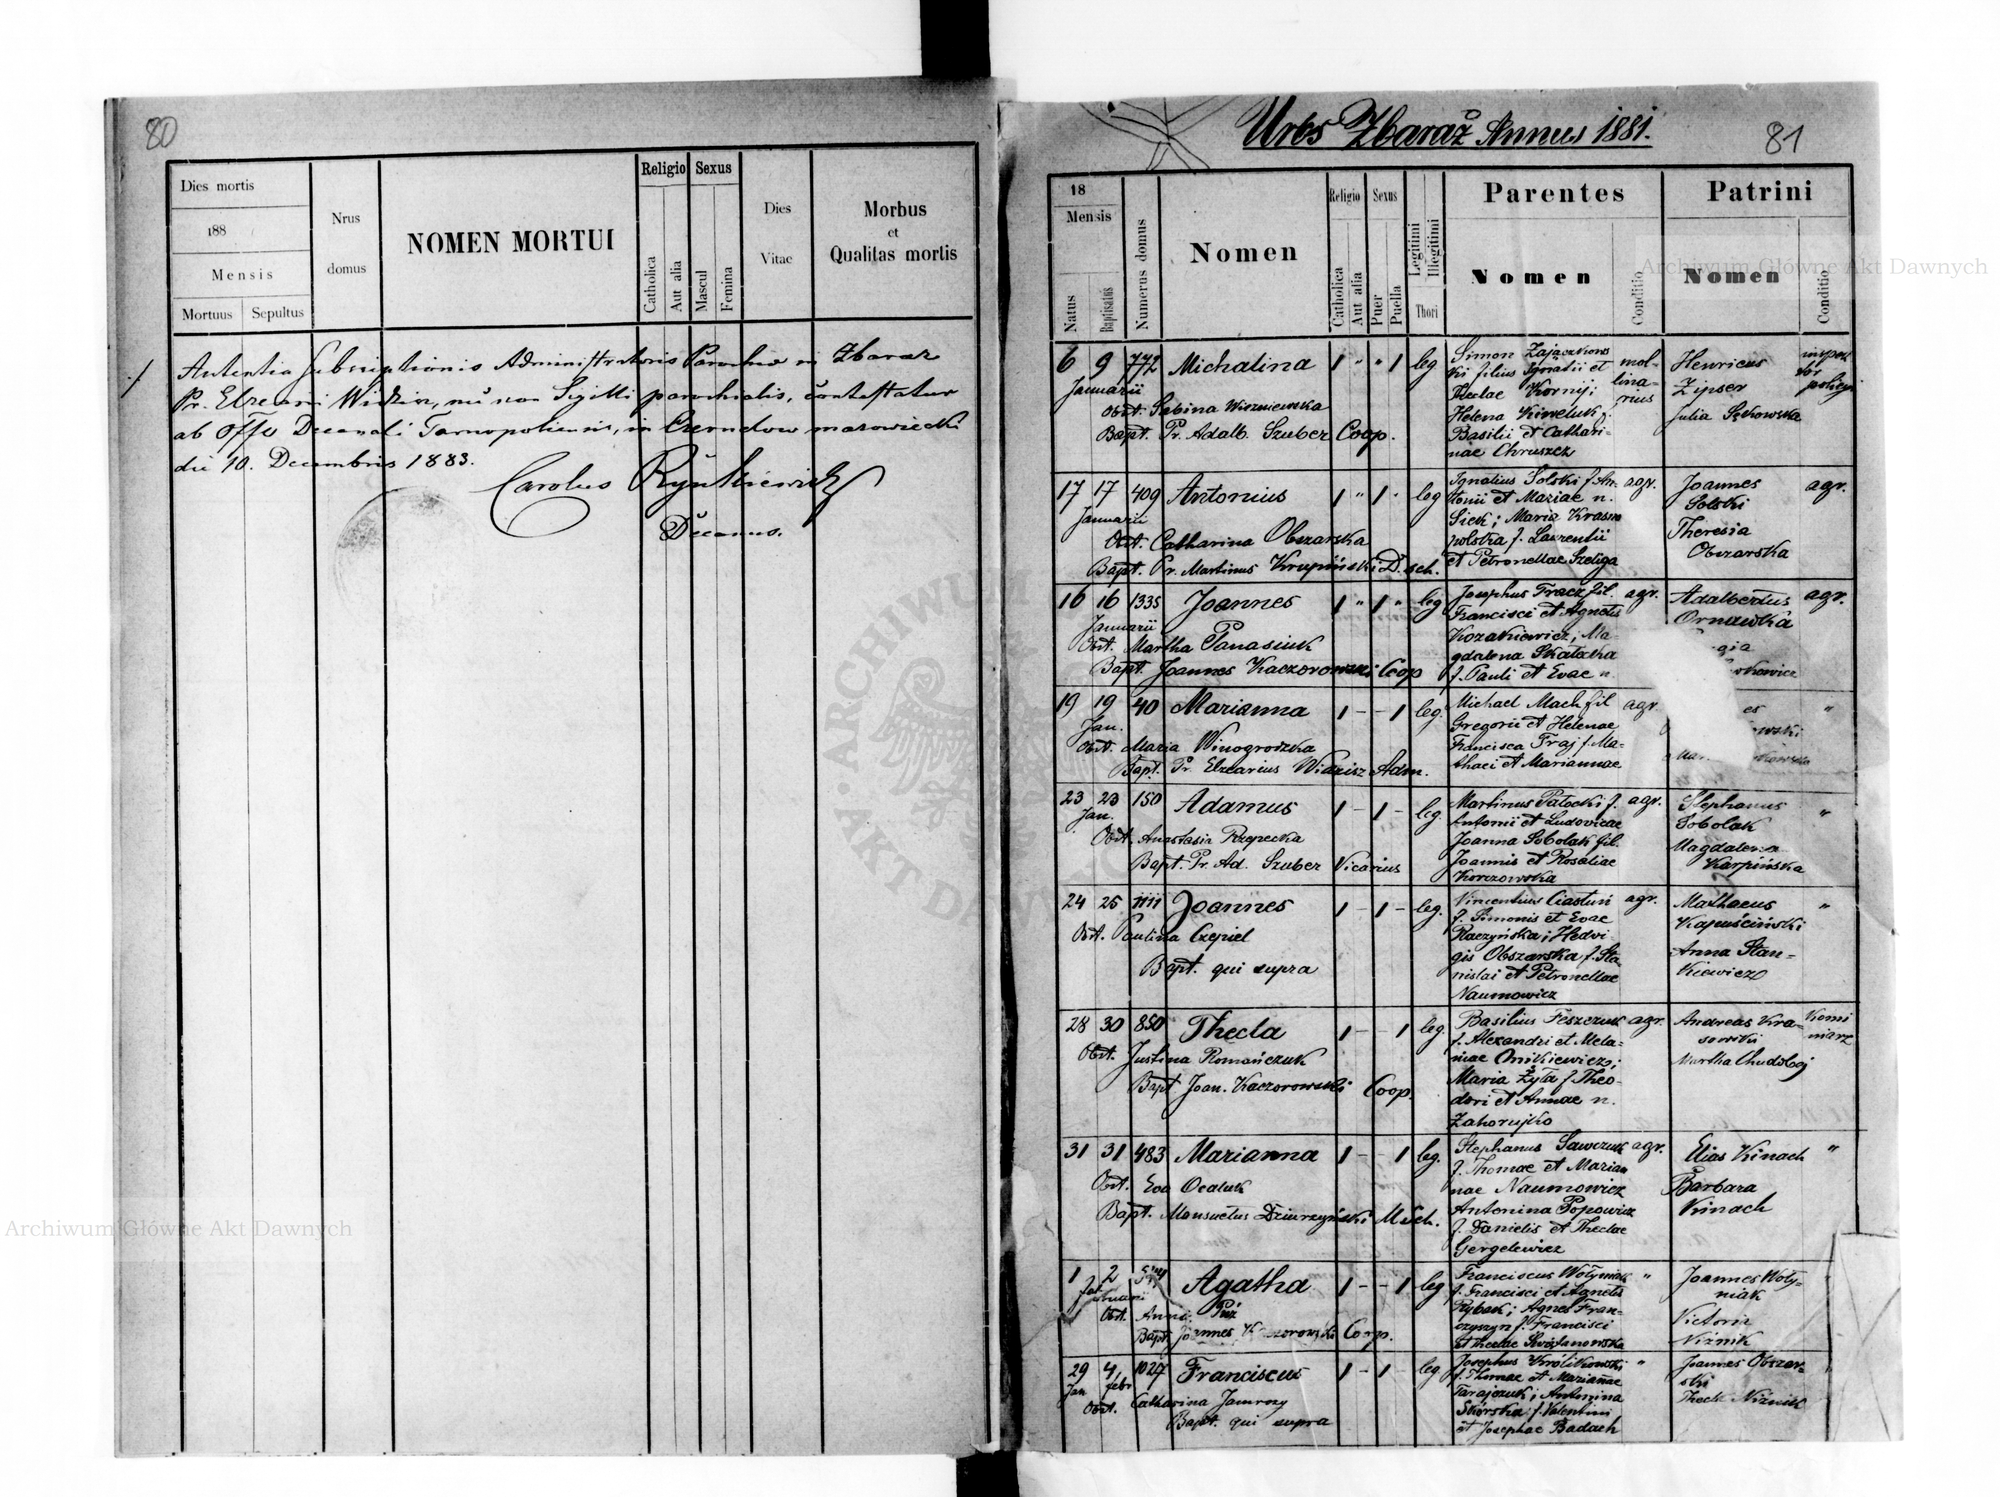 80
Dies mortis
188
Mensis
Mortuus
Sepultus
Nrus
domus
NOMEN MORTUI
Religio
Catholica
Aut alia
Sexus
Mascul
Femina
Dies
Vitae
Morbus
et
Qualitas mortis
Autentia subscriptionis Administratoris Parochiae in Zbaraz
Pr. Elzearii Widzisz, nec non Sigilli parochialis, contestatur
ab Offo Decanali Tarnopoliensi, in Czernelow mazowiecki
die 10. Decembris 1883.
Carolus
Decanus.
ARCHIWUM
AKT DAWNYCH
Archiwum Główne Akt Dawnych
Urbs Zbaraż Annus 1881.
81
18
Mensis
Natus
Baptisatus
Numerus domus
Nomen
Religio
Catholica
Aut alia
Sexus
Puer
Puella
Legitimi
Illegitimi
Thori
Parentes
Nomen
Conditio
Patrini
Nomen
Conditio
Archiwum Główne Akt Dawnych
6 9 772 Michalina 1 " " 1 leg
Januarii
Obst. Sabina Wiszniewska
Bapt. Pr. Adalb. Szuber Coop.
Simon Zajączkows
ki filius Ignatii et
Theclae Kornij;
Helena Kiweluk f.
Basilii et Cathari-
nae Chruszcz
mol-
lina-
rius
Henricus
Zipser
Julia Sękowska
inspek
tor
policyi
17 17 409 Antonius 1 " 1 " leg
Januarii
Obst. Catharina Obszarska
Bapt. Pr. Martinus Krupiński D. sch.
Ignatius Solski f. An-
tonii et Mariae n.
Siek; Maria Krasno
polska f. Laurentii
et Petronellae Szeliga
agr.
Joannes
Solski
Theresia
Obszarska
agr.
16 16 1335 Joannes 1 " 1 " leg
Januarii
Obst. Martha Panasiuk
Bapt. Joannes Kaczorowski Coop
Josephus Fracz fil.
Francisci et Agnetis
Kozakiewicz; Ma-
gdalena Skalacka
f. Pauli et Evae n.
agr.
Adalbertus
Ornawka
agr.
19 19 40 Marianna 1 - - 1 leg.
Jan.
Obst. Maria Winogrodzka
Bapt. Pr. Elzearius Widzisz Adm.
Michael Mach fil
Gregorii et Helenae
Francisca Fraj f. Ma-
thaei et Mariannae
agr.
"
23 23 150 Adamus 1 - 1 - leg.
Jan.
Obst. Anastasia Rzepecka
Bapt. Pr. Ad. Szuber Vicarius
Martinus Patocki f.
Antonii et Ludovicae
Joanna Sobolak fil.
Joannis et Rosaliae
Korczowska
agr.
Stephanus
Sobolak
Magdalena
Karpińska
"
24 25 1111 Joannes 1 - 1 - leg.
Obst. Paulina Czepiel
Bapt. qui supra
Vincentius Ciastuń
f. Simonis et Evae
Raczyńska; Hedvi-
gis Obszarska f. Sta-
nislai et Petronellae
Naumowicz
agr.
Mathaeus
Kapuściński
Anna Stan-
kiewicz
"
28 30 850 Thecla 1 - - 1 leg.
Obst. Justina Romańczuk
Bapt Joan. Kaczorowski Coop.
Basilius Feszczuk
f. Alexandri et Mela-
niae Onikiewicz;
Maria Żyła f. Theo-
dori et Annae n.
Zahorujko
agr.
Andreas Kra-
sowski
Martha Chudobej
Komi
niarz
31 31 483 Marianna 1 - - 1 leg.
Obst. Eva Ocaluk
Bapt. Mansuetus Dziurzyński M. Sch.
Stephanus Sawczuk
f. Thomae et Marian
nae Naumowicz
Antonina Popowicz
f. Danielis et Theclae
Gergelewicz
agr.
Elias Kinach
Barbara
Kinach
"
1 2 Agatha 1 - - 1 leg
Obst. Anna
Bapt. Joannes Kaczorowski Coop.
Franciscus Wołyniak
f. Francisci et Agnetis
Rybak; Agnes Fran-
czyszyn f. Francisci
et Theclae
"
Joannes Woły-
niak
Victoria
Niżnik
29 4 1027 Franciscus 1 - 1 - leg
Jan febr
Obst. Catharina Jamrozy
Bapt. qui supra
Josephus Królikowski
f. Thomae et Mariannae
Tarajczuk; Antonina
Sikorska f. Valentini
et Josephae Badach
"
Joannes Obszar-
ski
Thecla Niżnik